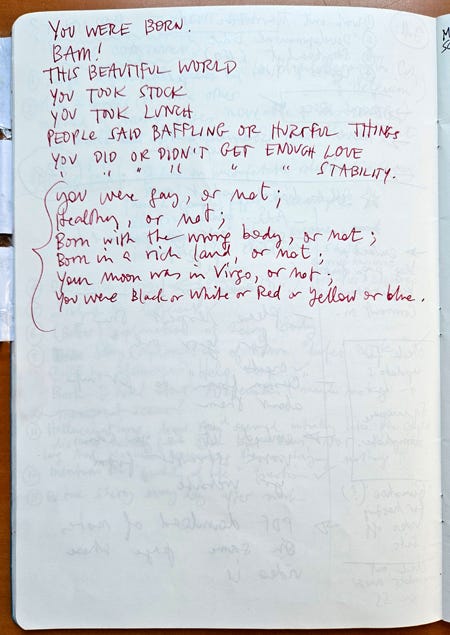 YOU WERE BORN.
BAM!
THIS BEAUTIFUL WORLD
YOU TOOK STOCK
YOU TOOK LUNCH
PEOPLE SAID BAFFLING OR HURTFUL THINGS
YOU DID OR DIDN'T GET ENOUGH LOVE
" " " " " " STABILITY.
you were gay, or not;
Healthy, or not;
Born with the wrong body, or not;
Born in a rich land, or not;
Your moon was in Virgo, or not;
You were Black or White or Red or Yellow or blue.